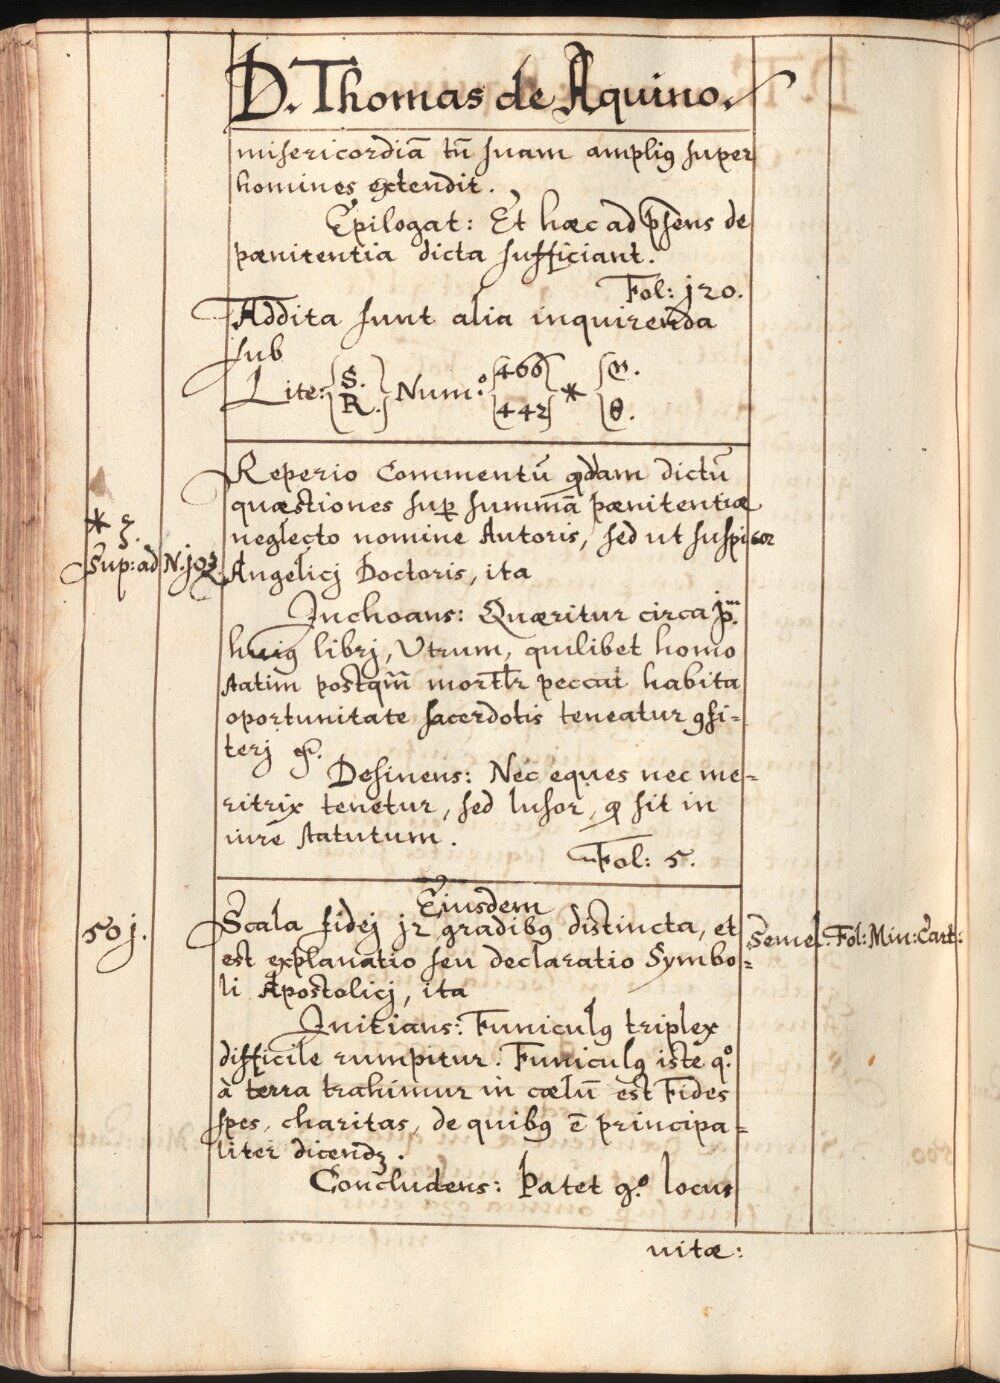 D. Thomas de Aquino.
misericordiā tn̄ suam ampliꝰ super
homines extendit.
Epilogat: Et hæc ad p̄sens de
pænitentia dicta sufficiant.
Fol: j20.
Addita sunt alia inquirenda
sub
Lite: {S. R.} Num.º {466 442} * {
Reperio Commentū qdam dictū
quæstiones sup summā pænitentiæ
neglecto nomine Autoris, sed ut suspicor
* 3.
Sup: ad N. j03. Angelicj Doctoris, ita
Inchoans: Quæritur circa
huiꝰ librj, Utrum, quilibet homo
statim postqm̄ mortlr peccat habita
oportunitate sacerdotis teneatur ꝯfi-
terj
Desinens: Nec eques nec me-
ritrix tenetur, sed lusor, q sit in
iure statutum.
Fol: 5.
Eiusdem
50j. Scala fidej j2 gradibꝰ distincta, et Semel. Fol: Min: Cart:
est explanatio seu declaratio Symbo-
li Apostolicj, ita
Initians: Funiculꝰ triplex
difficile rumpitur. Funiculꝰ iste q.º
à terra trahimur in cælū est Fides
spes, charitas, de quibꝰ ē principa-
liter dicendꝫ.
Concludens: Patet g.º locus
vitæ: